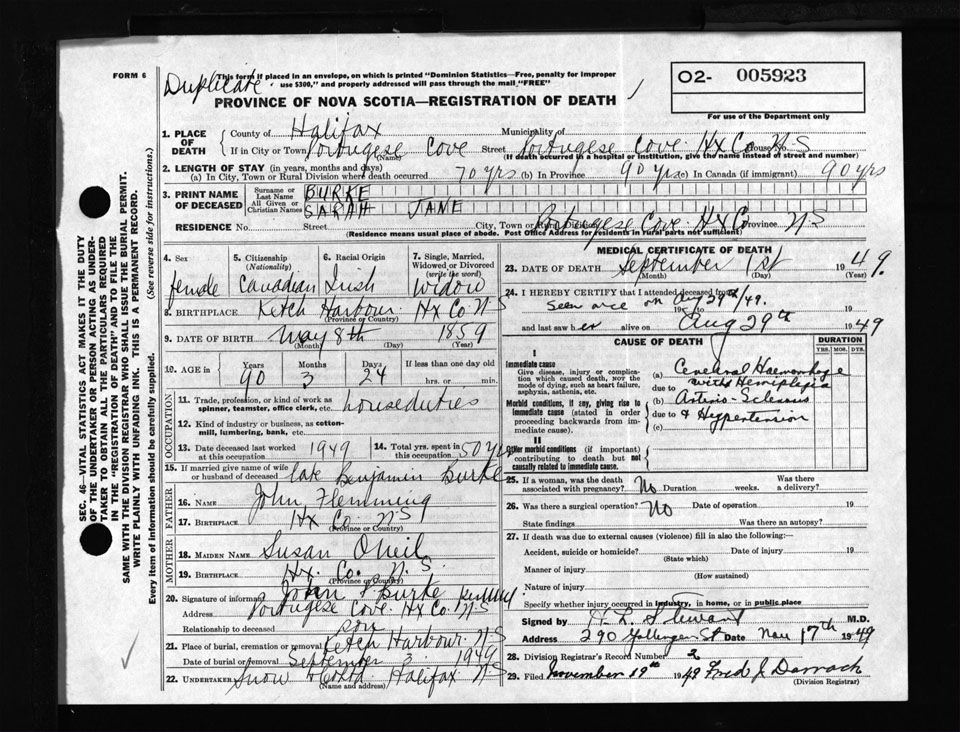 FORM 6
Duplicate
This form if placed in an envelope, on which is printed "Dominion Statistics—Free, penalty for improper
use $300," and properly addressed will pass through the mail "FREE"
PROVINCE OF NOVA SCOTIA—REGISTRATION OF DEATH
O2- 005923
For use of the Department only
SEC. 46—VITAL STATISTICS ACT MAKES IT THE DUTY
OF THE UNDERTAKER OR PERSON ACTING AS UNDER-
TAKER TO OBTAIN ALL THE PARTICULARS REQUIRED
IN THE "REGISTRATION OF DEATH" AND FILE THE
SAME WITH THE DIVISION REGISTRAR WHO SHALL ISSUE THE BURIAL PERMIT.
WRITE PLAINLY WITH UNFADING INK. THIS IS A PERMANENT RECORD.
Every item of information should be carefully supplied. (See reverse side for instructions.)
1. PLACE OF DEATH County of Halifax Municipality of
If in City or Town Portugese Cove (Name) Street Portugese Cove Hx Co House No. N S
(If death occurred in a hospital or institution, give the name instead of street and number)
2. LENGTH OF STAY (in years, months and days)
(a) In City, Town or Rural Division where death occurred 70 yrs (b) In Province 90 yrs (c) In Canada (if immigrant) 90 yrs
3. PRINT NAME OF DECEASED Surname or Last Name BURKE
All Given or Christian Names SARAH JANE
RESIDENCE No. Street City, Town or Rural Division Portugese Cove Hx Co Province N S
(Residence means usual place of abode. Post Office Address for residents in rural parts not sufficient)
4. Sex 5. Citizenship (Nationality) 6. Racial Origin 7. Single, Married, Widowed or Divorced (write the word)
female Canadian Irish Widow
8. BIRTHPLACE Ketch Harbour Hx Co. N S
(Province or Country)
9. DATE OF BIRTH May 8th 1859
(Month) (Day) (Year)
10. AGE in Years Months Days If less than one day old
90 3 24 hrs. or min.
OCCUPATION
11. Trade, profession, or kind of work as spinner, teamster, office clerk, etc. houseduties
12. Kind of industry or business, as cotton-mill, lumbering, bank, etc.
13. Date deceased last worked at this occupation 1949 14. Total yrs. spent in this occupation 50 yrs
15. If married give name of wife or husband of deceased late Benjamin Burke
FATHER
16. NAME John Flemming
17. BIRTHPLACE Hx Co N S
(Province or Country)
MOTHER
18. MAIDEN NAME Susan Oneil
19. BIRTHPLACE Hx. Co. N. S.
(Province or Country)
20. Signature of informant John F Burke
Address Portugese Cove Hx Co. N S
Relationship to deceased son
21. Place of burial, cremation or removal Ketch Harbour N S
Date of burial or removal September 3 1949
22. UNDERTAKER Snow Halifax N S
(Name and address)
MEDICAL CERTIFICATE OF DEATH
23. DATE OF DEATH September 1st 1949.
(Month) (Day) (Year)
24. I HEREBY CERTIFY that I attended deceased from
Seen once on Aug 29th/49. 19
and last saw her alive on Aug 29th 1949
CAUSE OF DEATH DURATION
YRS. MOS. DYS.
I
Immediate cause
Give disease, injury or complication which caused death, NOT the mode of dying, such as heart failure, asphyxia, asthenia, etc.
(a) Cerebral Haemorrhage
due to with Hemiplegia
Morbid conditions, if any, giving rise to immediate cause (stated in order proceeding backwards from immediate cause).
(b) Arterio-Sclerosis
due to & Hypertension
(c)
II
Other morbid conditions (if important) contributing to death but not causally related to immediate cause.
25. If a woman, was the death associated with pregnancy? No Duration weeks. Was there a delivery?
26. Was there a surgical operation? No Date of operation 19
State findings Was there an autopsy?
27. If death was due to external causes (violence) fill in also the following:—
Accident, suicide or homicide? Date of injury 19
(State which)
Manner of injury
(How sustained)
Nature of injury
Specify whether injury occurred in industry, in home, or in public place
Signed by Stewart M.D.
Address 290 Gottingen St Date Nov 17th 1949
28. Division Registrar's Record Number 2
29. Filed November 19th 1949 Fred J Darrach
(Division Registrar)